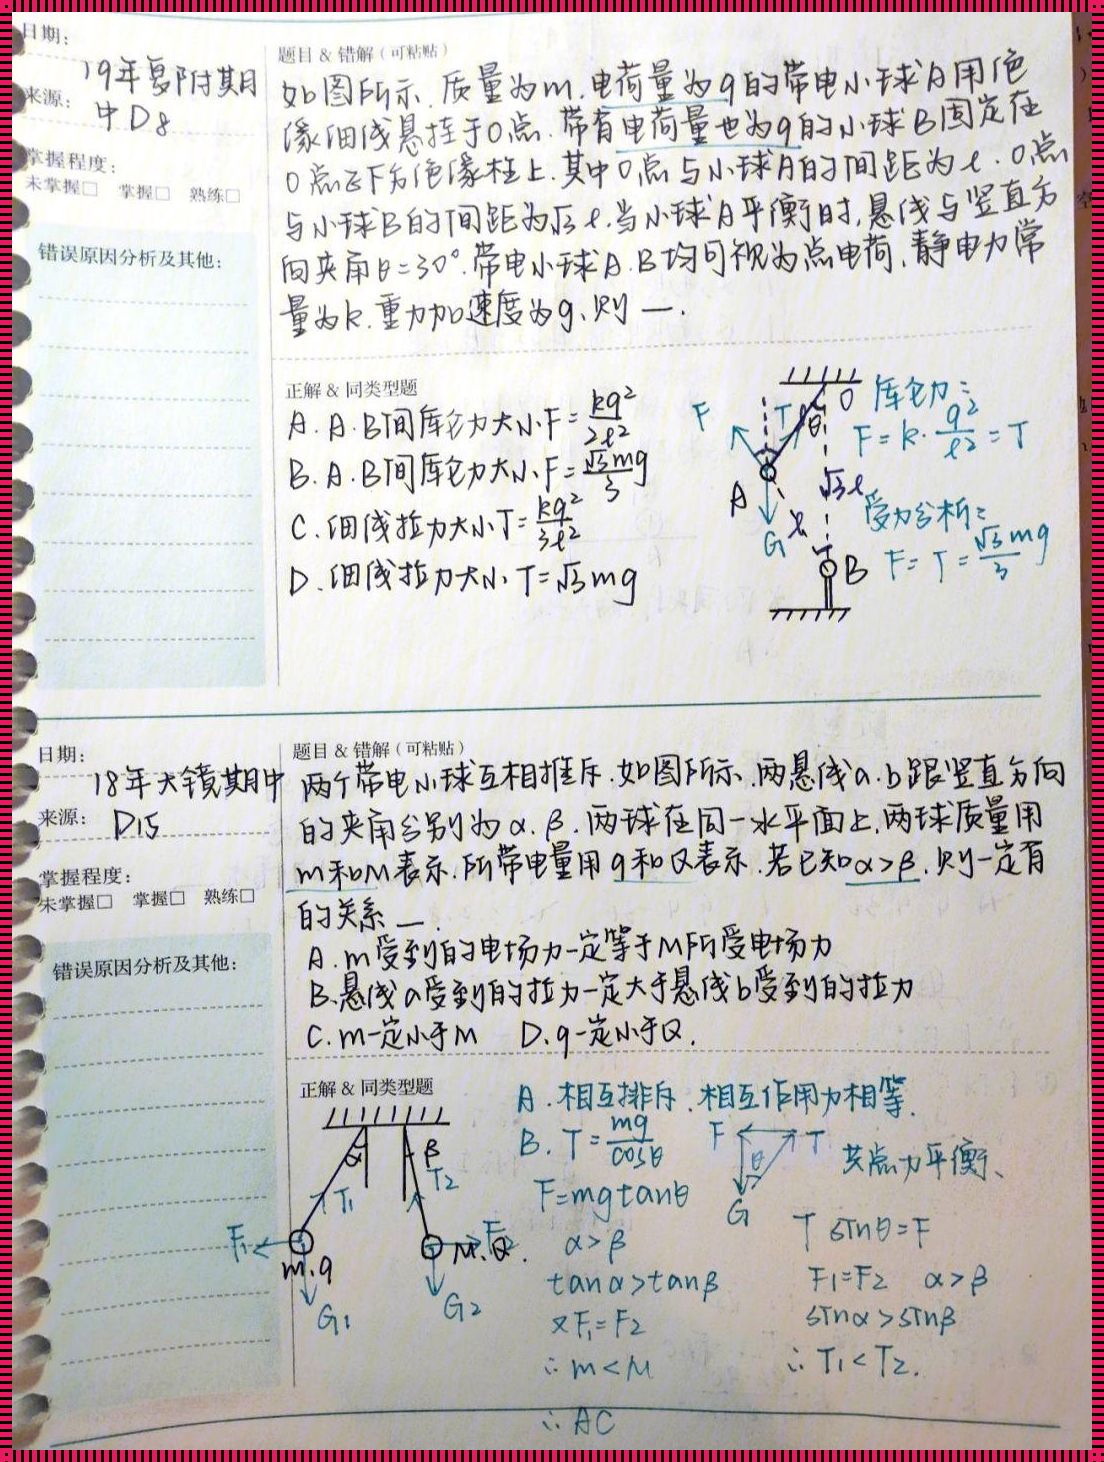 日期：
19年复附期
来源：
中D8
掌握程度：
未掌握□ 掌握□ 熟练□
错误原因分析及其他：
题目 & 错解（可粘贴）
如图所示，质量为m，电荷量为q的带电小球A用绝
缘细线悬挂于O点，带有电荷量也为q的小球B固定在
O点正下方绝缘柱上，其中O点与小球A的间距为l，O点
与小球B的间距为√3l，当小球A平衡时，悬线与竖直方
向夹角θ=30°，带电小球A、B均可视为点电荷，静电力常
量为k，重力加速度为g，则 —.
正解 & 同类型题
A. A、B间库仑力大小F=kq²/2l²
B. A、B间库仑力大小F=√3mg/3
C. 细线拉力大小T=kq²/3l²
D. 细线拉力大小T=√3mg
F
T
O
θ
A
√3l
G
l
B
库仑力：
F=k·q²/l²=T
受力分析：
F=T=√3mg/3
日期：
18年大镜期中
来源：
D15
掌握程度：
未掌握□ 掌握□ 熟练□
错误原因分析及其他：
题目 & 错解（可粘贴）
两个带电小球互相排斥，如图所示，两悬线a、b跟竖直方向
的夹角分别为α、β，两球在同一水平面上，两球质量用
m和M表示，所带电量用q和Q表示，若已知α>β，则一定有
的关系 —.
A. m受到的电场力一定等于M所受电场力
B. 悬线a受到的拉力一定大于悬线b受到的拉力
C. m一定小于M D. q一定小于Q.
正解 & 同类型题
α
β
T₁
T₂
F₁
F₂
m.q
M.Q.
G₁
G₂
A. 相互排斥，相互作用力相等.
B. T=mg/cosθ
F=mgtanθ
α>β
tanα>tanβ
又F₁=F₂
∴m<M
F
T
θ
G
共点力平衡、
Tsinθ=F
F₁=F₂ α>β
sinα>sinβ
∴T₁<T₂.
∴AC